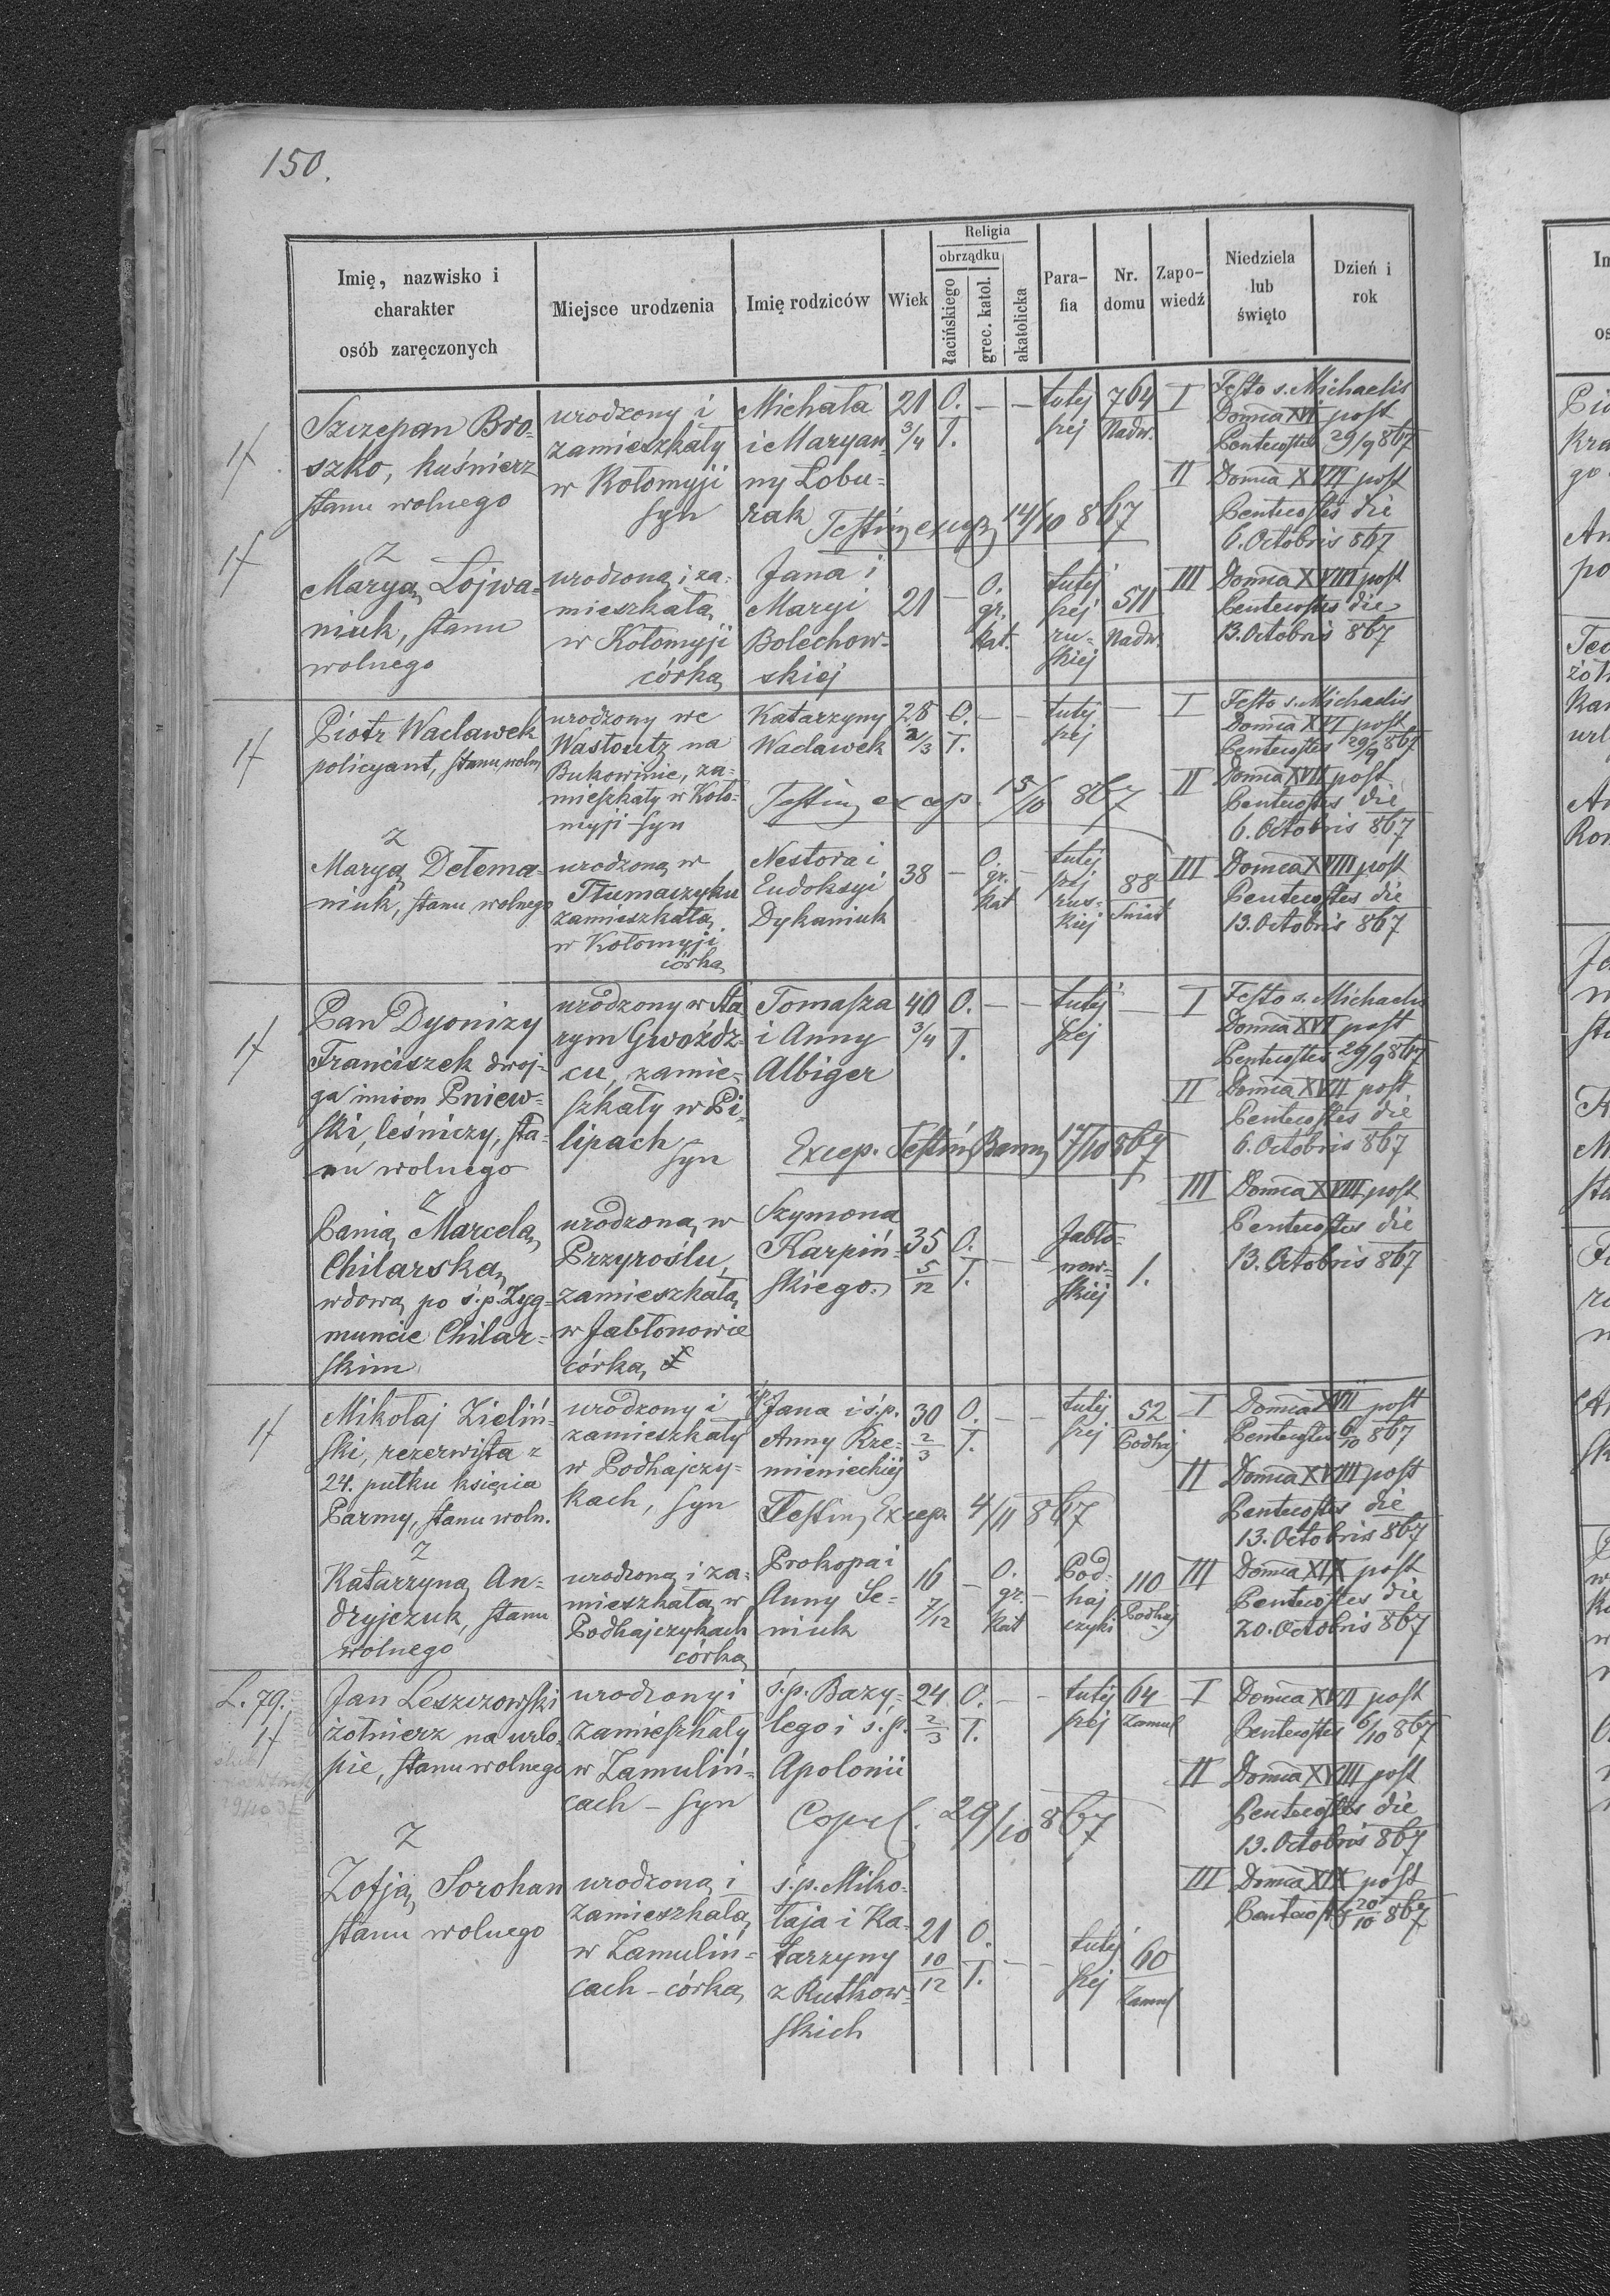 150.
Imię, nazwisko i
charakter
osób zaręczonych
Miejsce urodzenia
Imię rodziców
Wiek
Religia
obrządku
łacińskiego
grec. katol.
akatolicka
Para-
fia
Nr.
domu
Zapo-
wiedź
Niedziela
lub
święto
Dzień i
rok
Szczepan Bro-
szko, kuśnierz
stanu wolnego
urodzony i
zamieszkały
w Kołomyji
syn
Michała
i Maryan-
ny Lobu-
rak
21
3/4
O.
Ł.
tutej
szej
764
Nadw.
I Festo s. Michaelis
Domca XVI post
Pentecostes 29/9 867
II Domca XVII post
Pentecostes die
6. Octobris 867
14/10 867
z
Maryą Lojwa-
niuk, stanu
wolnego
urodzoną i za-
mieszkałą
w Kołomyji
córką
Jana i
Maryi
Bolechow-
skiej
21
O.
gr.
kat.
tutej
szej
ru-
skiej
511
Nadw.
III Domca XVIII post
Pentecostes die
13. Octobris 867
Piotr Wacławek
policyant, stanu woln.
urodzony we
na
Bukowinie, za-
mieszkały w Koło-
myji syn
Katarzyny
Wacławek
28
2/3
O.
Ł.
tutej
szej
I Festo s. Michaelis
Domca XVI post
Pentecostes 29/9 867
II Domca XVII post
Pentecostes die
6. Octobris 867
Testim excep. 15/10 867
z
Maryą Detema-
niuk, stanu wolnego
urodzoną w
Tłumaczyku
zamieszkałą
w Kołomyji
córką
Nestora i
Eudoksyi
Dykaniuk
38
O.
gr.
kat
tutej
szej
rus-
kiej
88
Śniat
III Domca XVIII post
Pentecostes die
13. Octobris 867
Pan Dyonizy
Franciszek dwoj-
ga imion Pniew-
ski, leśniczy, sta-
nu wolnego
urodzony w Sta
rym Gwoźdz-
cu, zamie-
szkały w Pi-
lipach
syn
Tomasza
i Anny
Albiger
40
3/4
O.
Ł.
tutej
szej
I Festo s. Michaelis
Domca XVI post
Pentecostes 29/9 867
II Domca XVII post
Pentecostes die
6. Octobris 867
Excep. Testim Bann 17/10 867
z
Panią Marcelą
Chilarską
wdową po ś.p. Zyg-
muncie Chilar-
skim
urodzoną w
Przyroślu,
zamieszkałą
w Jabłonowie
córką
Szymona
Karpiń-
skiego.
35
5/12
O.
Ł.
Jabło-
now-
skiej
1.
III Domca XVIII post
Pentecostes die
13. Octobris 867
Mikołaj Zieliń-
ski, rezerwista z
24. pułku księcia
Parmy, stanu woln.
urodzony i
zamieszkały
w Podhajczy-
kach, syn
Jana i ś.p.
Anny Krze-
mienieckiej
30
2/3
O.
Ł.
tutej
szej
52
Podhaj
I Domca XVII post
Pentecostes 6/10 867
II Domca XVIII post
Pentecostes die
13. Octobris 867
Testim Excep. 4/11 867
z
Katarzyną An-
dryjczuk, stanu
wolnego
urodzoną i za-
mieszkałą w
Podhajczykach
córką
Prokopa i
Anny Se-
niuk
16
7/12
O.
gr.
kat
Pod-
haj
czyki
110
Podhaj
III Domca XIX post
Pentecostes die
20. Octobris 867
L. 79.
Jan Leszczowski
żołnierz na urlo-
pie, stanu wolnego
urodzony i
zamieszkały
w Zamuliń-
cach - syn
ś.p. Bazy-
lego i ś.p.
Apolonii
24
2/3
O.
Ł.
tutej
szej
64
Zamul
I Domca XVII post
Pentecostes 6/10 867
II Domca XVIII post
Pentecostes die
13. Octobris 867
Copul. 29/10 867
z
Zofją Sorohan
stanu wolnego
urodzoną i
zamieszkałą
w Zamuliń-
cach - córką
ś.p. Miko-
łaja i Ka-
tarzyny
z Rutkow-
skich
21
10/12
O.
Ł.
tutej
szej
60
Zamul
III Domca XIX post
Pentecost 20/10 867